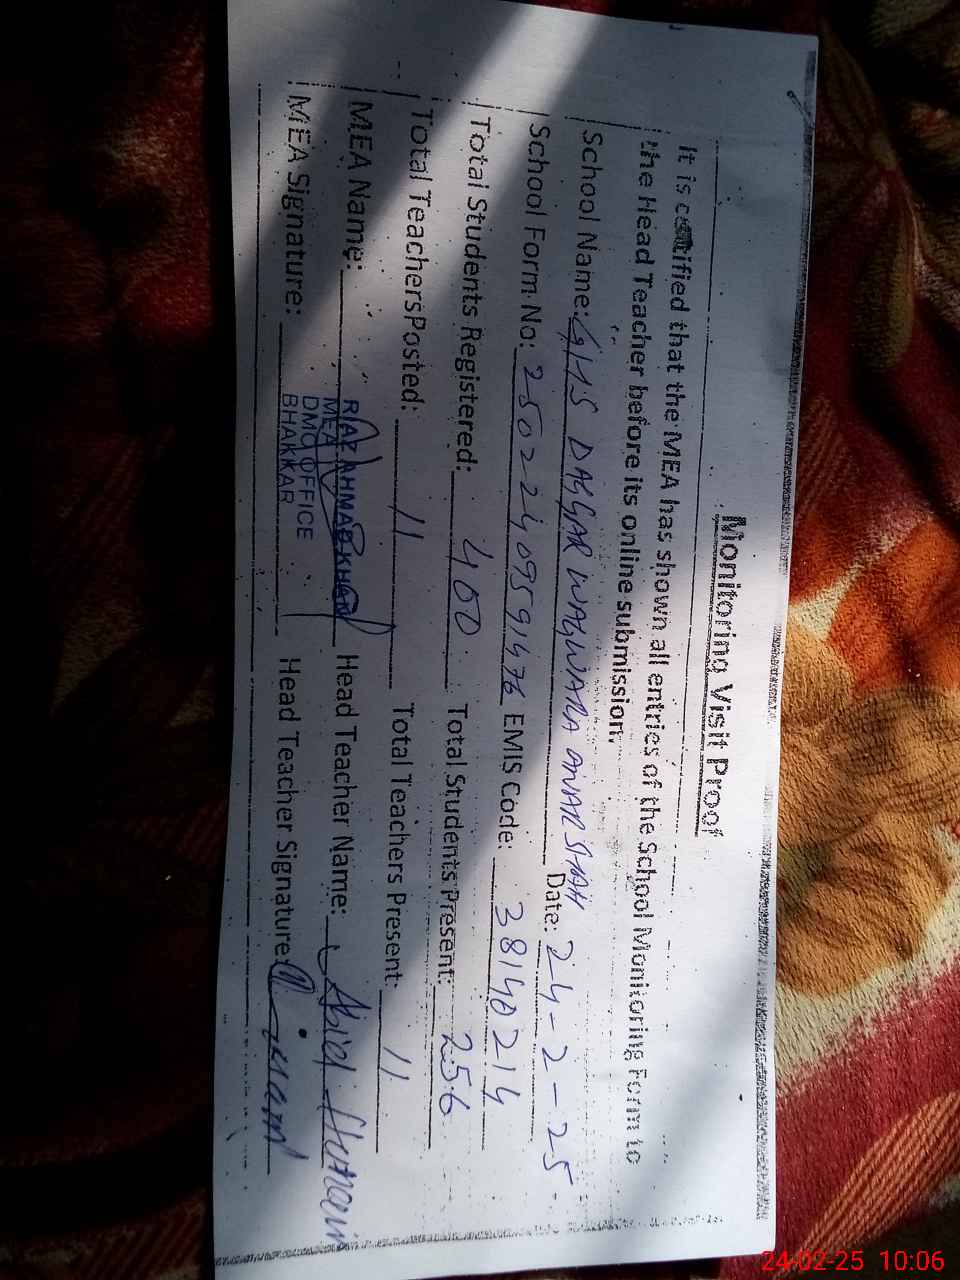 Monitoring Visit Proof
It is certified that the MEA has shown all entries of the School Monitoring Form to
the Head Teacher before its online submission.
School Name: GHS DAGGAR WAGWARA ANAR SHAH Date: 24-2-25
School Form No: EMIS Code: 38140214
Total Students Registered: 400 Total Students Present: 256
Total Teachers Posted: 11 Total Teachers Present: 11
MEA Name: RIAZ AHMAD KHAN Head Teacher Name: Abid Hussain
MEA
DMO OFFICE
BHAKKAR
MEA Signature: Head Teacher Signature:
24-02-25 10:06